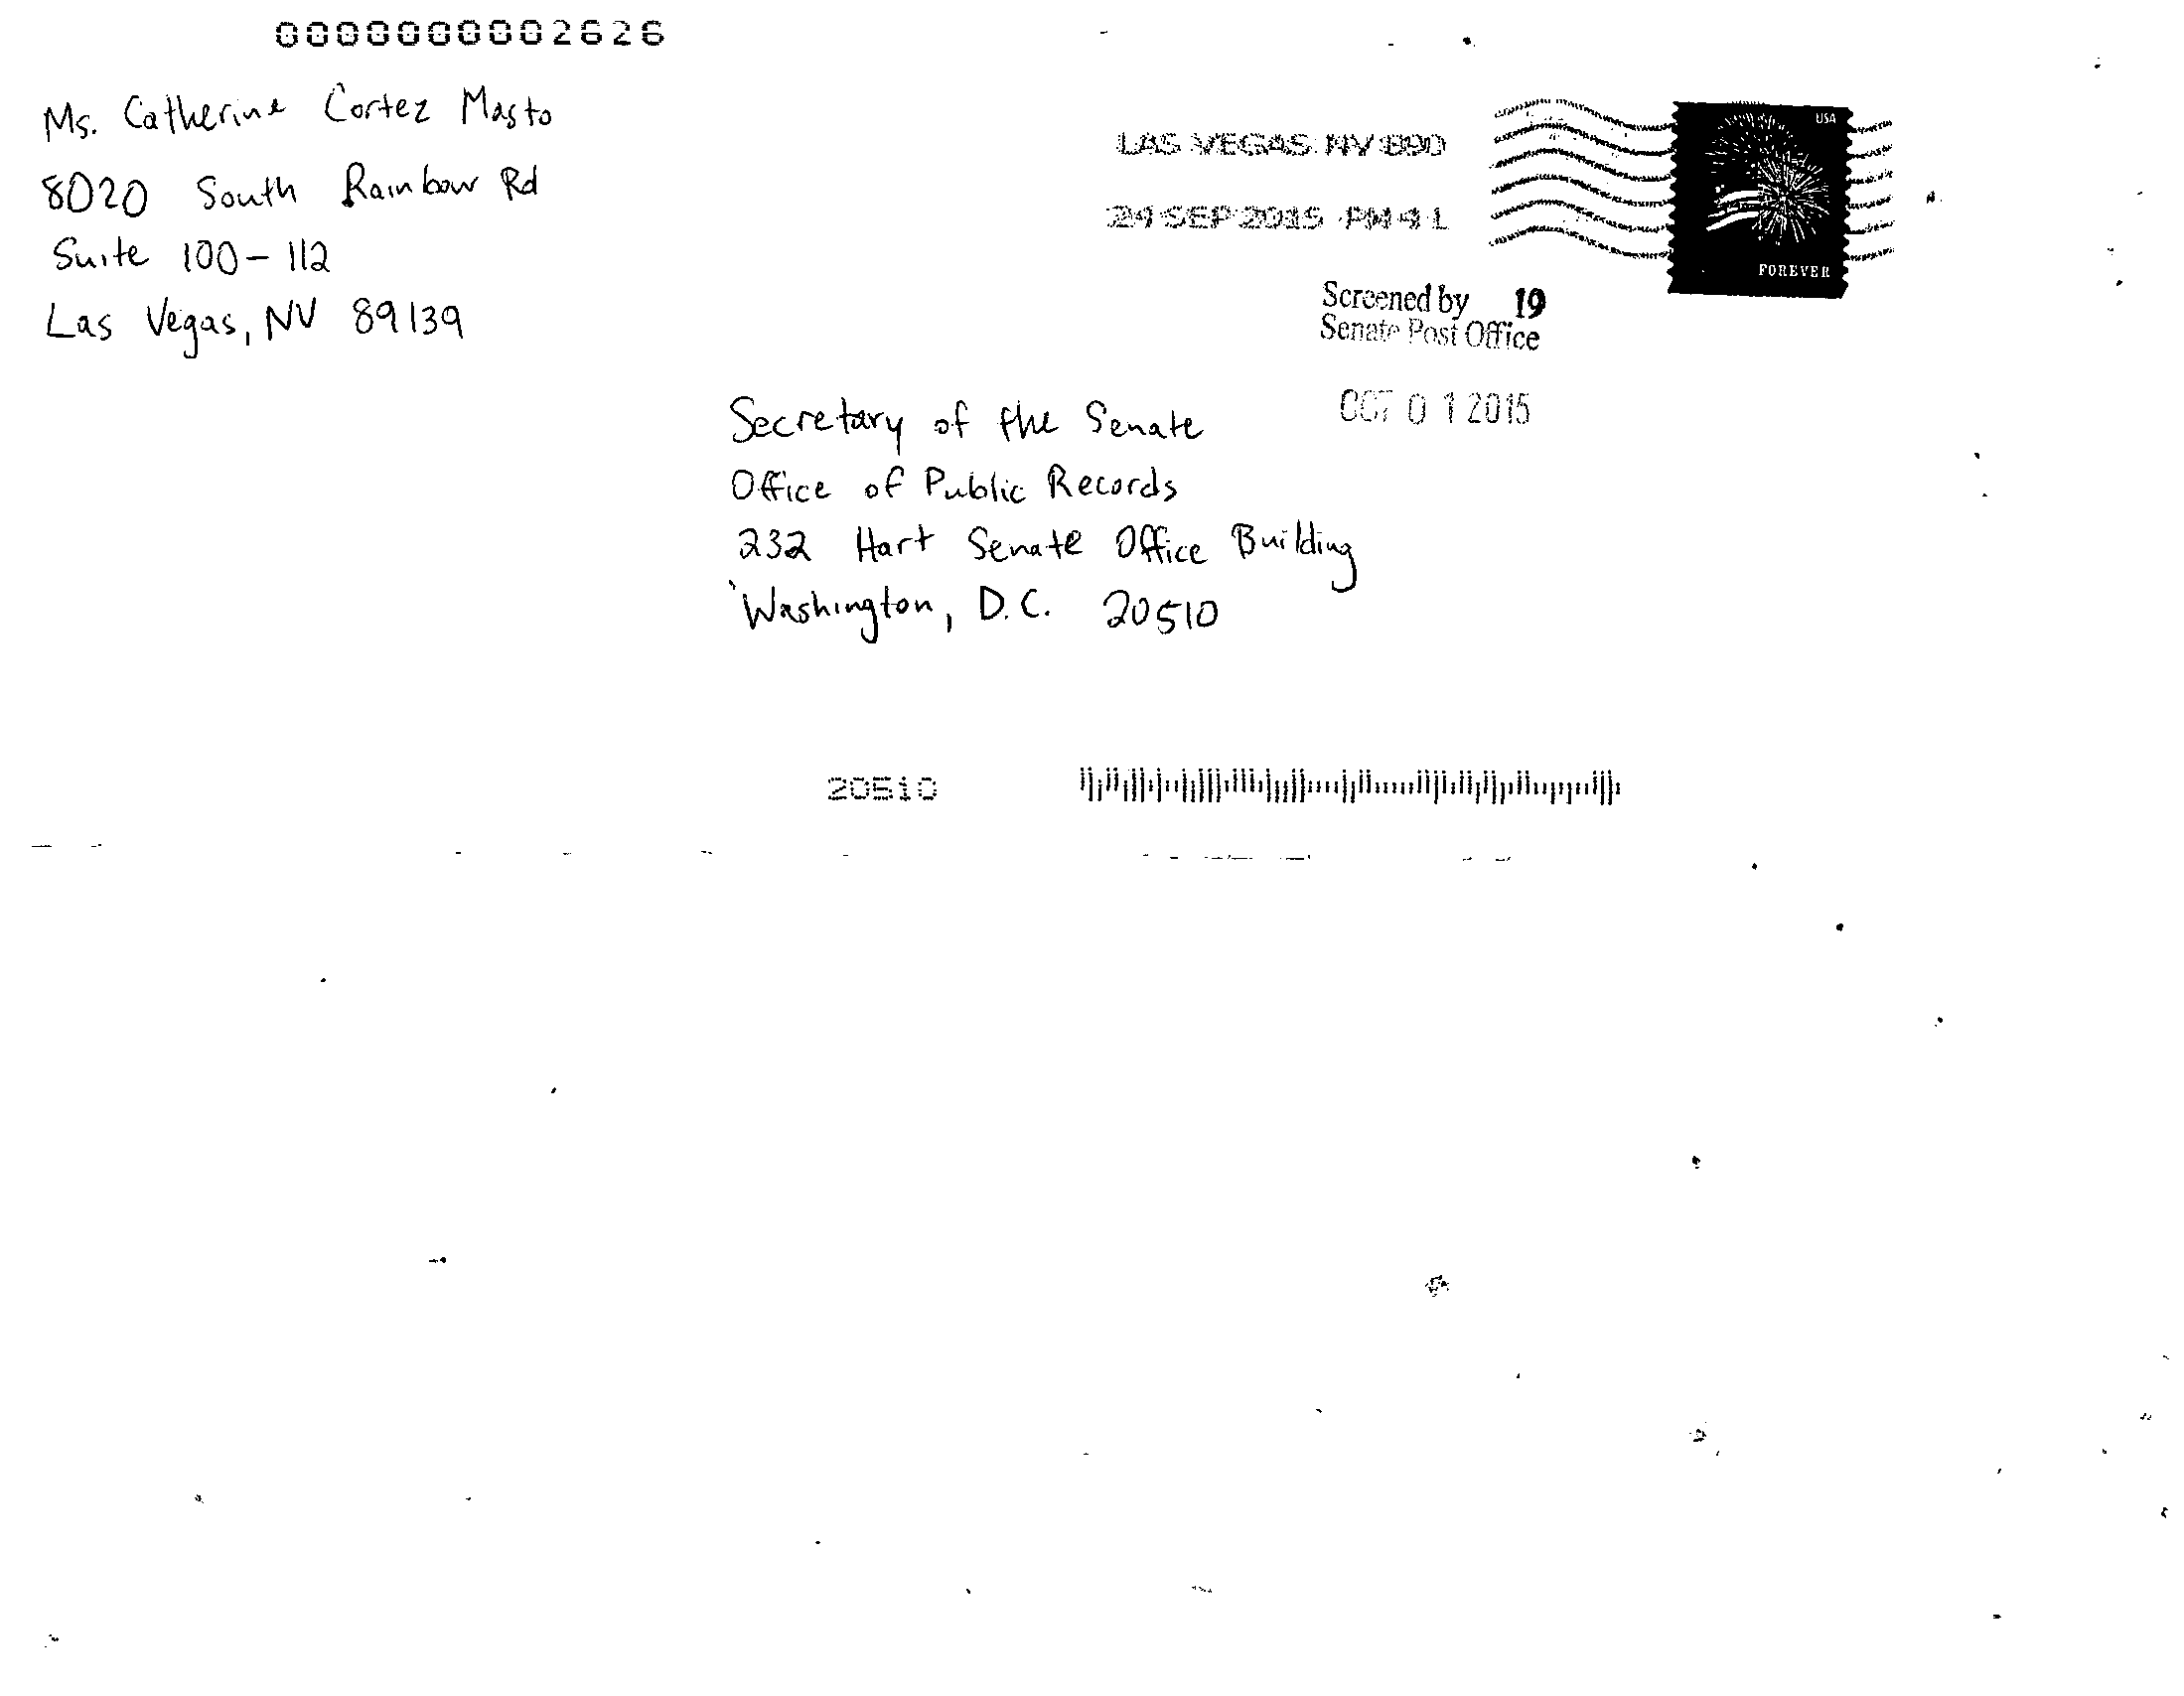 0000000002626
Ms. Catherine Cortez Masto
8020 South Rainbow Rd
Suite 100-112
Las Vegas, NV 89139
LAS VEGAS NV 890
24 SEP 2015 PM 4 L
USA
FOREVER
Screened by 19
Senate Post Office
OCT 01 2015
Secretary of the Senate
Office of Public Records
232 Hart Senate Office Building
Washington, D.C. 20510
20510